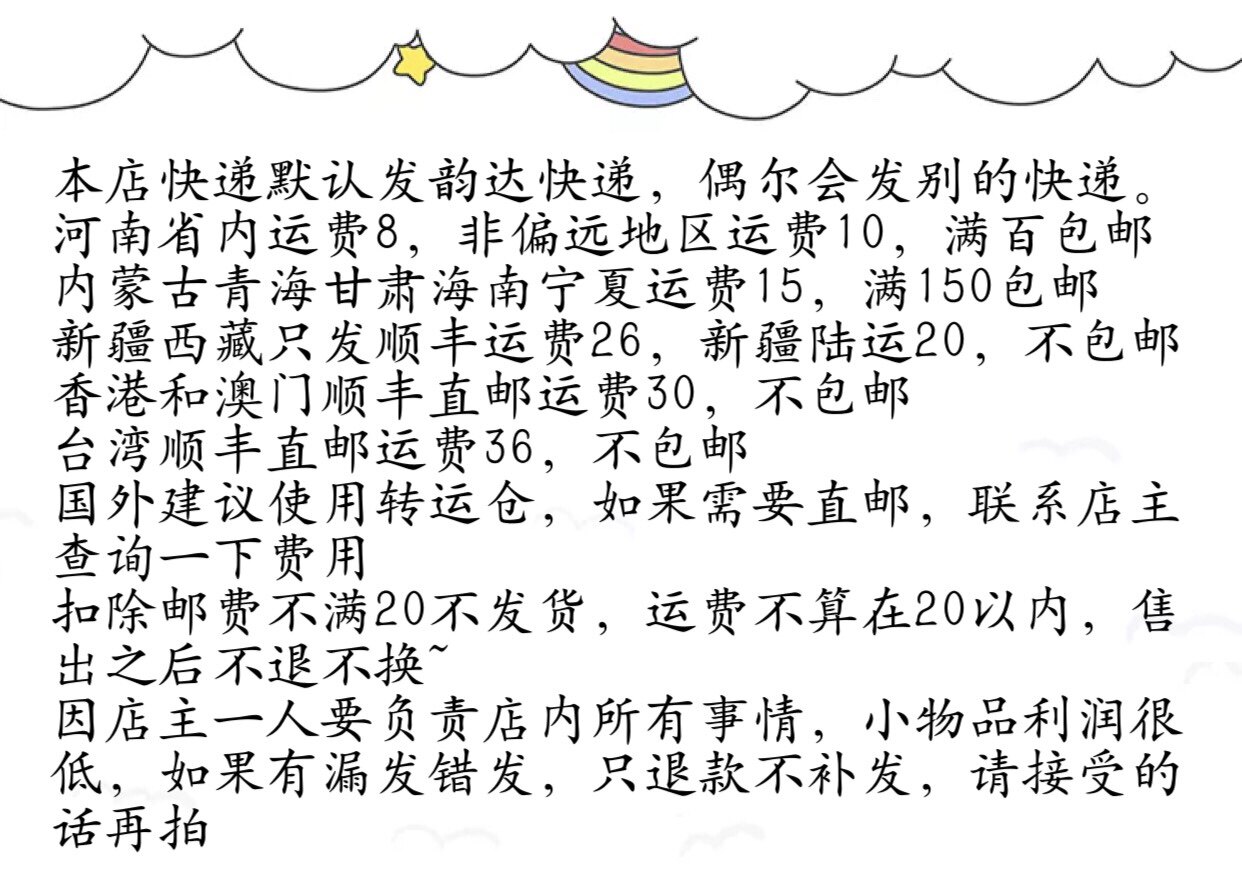 本店快递默认发韵达快递，偶尔会发别的快递。
河南省内运费8，非偏远地区运费10，满百包邮
内蒙古青海甘肃海南宁夏运费15，满150包邮
新疆西藏只发顺丰运费26，新疆陆运20，不包邮
香港和澳门顺丰直邮运费30，不包邮
台湾顺丰直邮运费36，不包邮
国外建议使用转运仓，如果需要直邮，联系店主
查询一下费用
扣除邮费不满20不发货，运费不算在20以内，售
出之后不退不换~
因店主一人要负责店内所有事情，小物品利润很
低，如果有漏发错发，只退款不补发，请接受的
话再拍